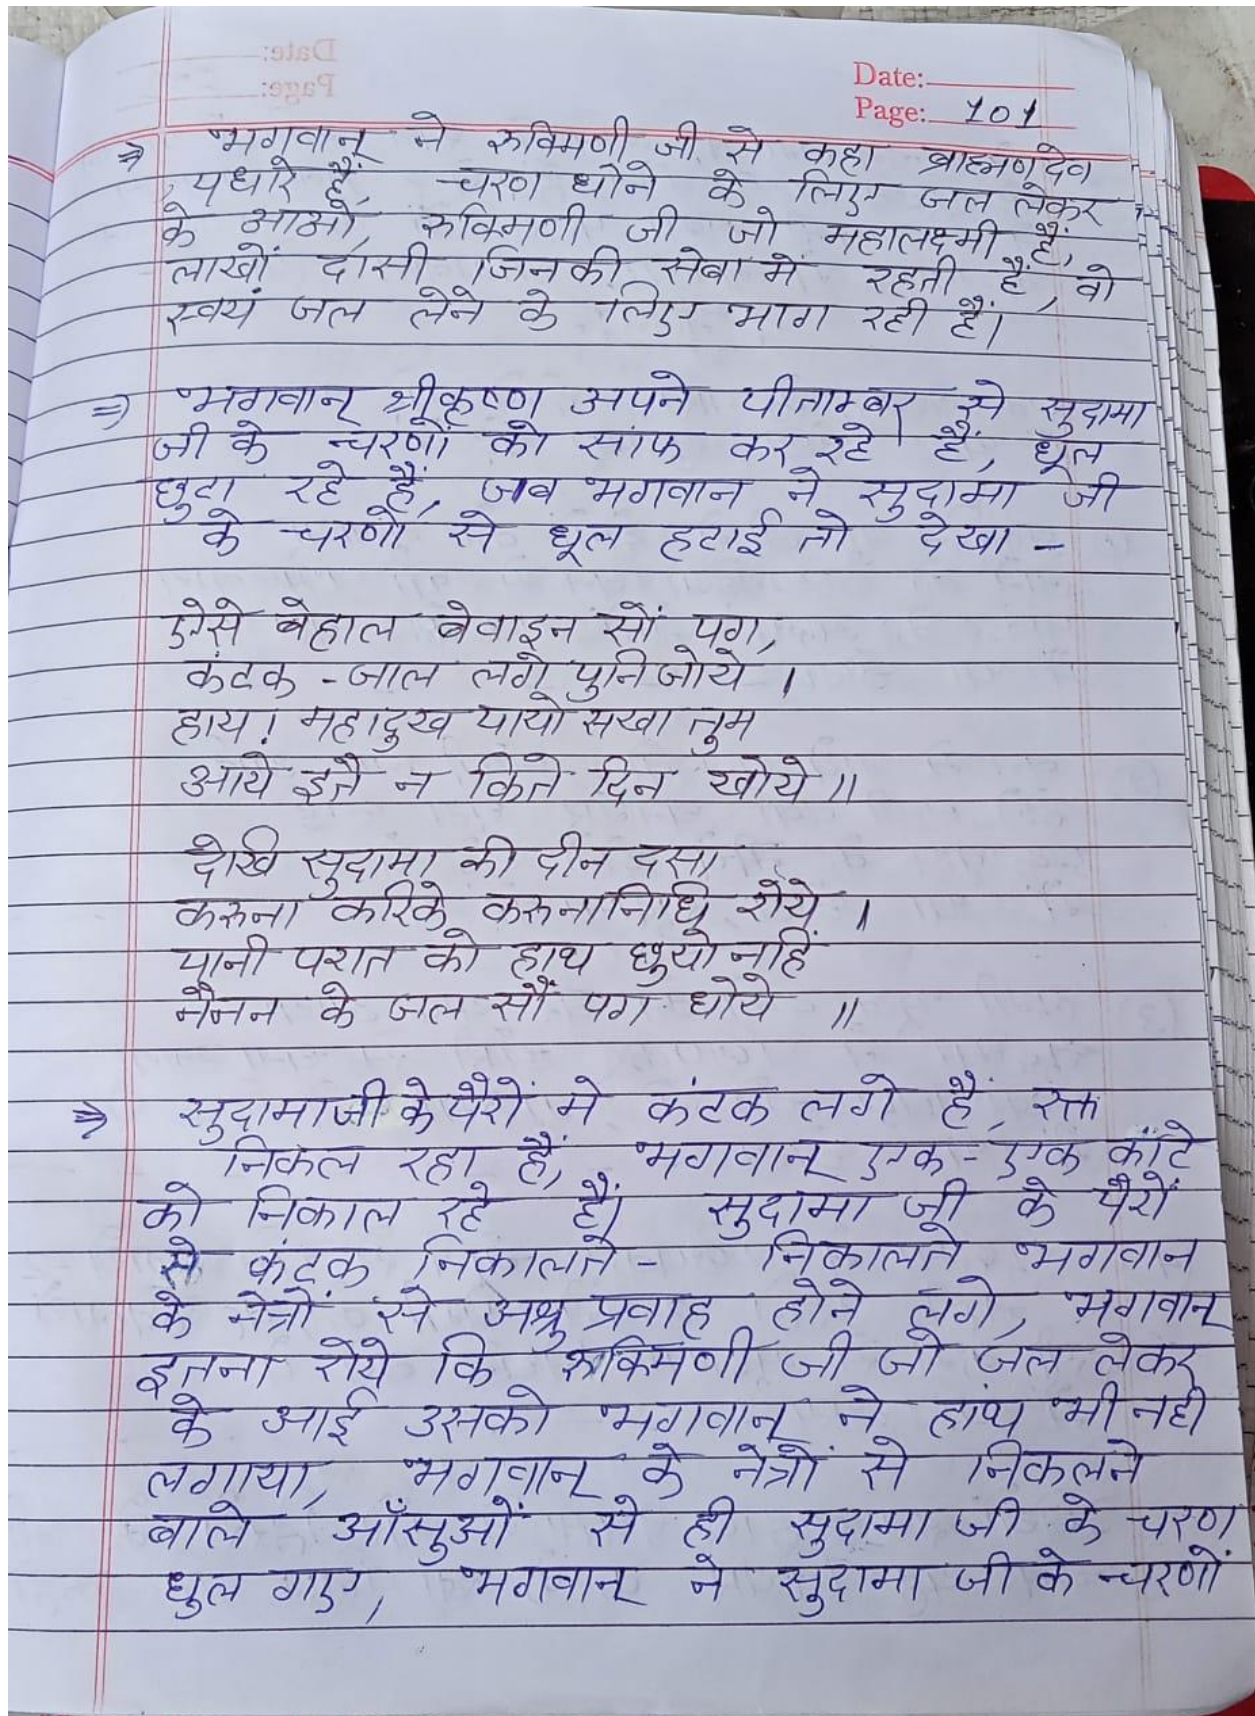 Date:
Page: 101
⇒ भगवान् ने रुक्मिणी जी से कहा ब्राह्मणदेव
पधारे हैं, चरण धोने के लिए जल लेकर
के आओ, रुक्मिणी जी जो महालक्ष्मी हैं,
लाखों दासी जिनकी सेवा में रहती हैं, वो
स्वयं जल लेने के लिए भाग रही हैं।
⇒ भगवान् श्रीकृष्ण अपने पीताम्बर से सुदामा
जी के चरणों को साफ कर रहे हैं, धूल
छुटा रहे हैं, जब भगवान ने सुदामा जी
के चरणों से धूल हटाई तो देखा -
ऐसे बेहाल बेवाइन सों पग,
कंटक - जाल लगे पुनि जोये ।
हाय! महादुख पायो सखा तुम
आये इतै न किते दिन खोये ॥
देखि सुदामा की दीन दसा
करुना करिके करुनानिधि रोये ।
पानी परात को हाथ छुयो नहिं
नैनन के जल सों पग धोये ॥
⇒ सुदामाजी के पैरों में कंटक लगे हैं, रक्त
निकल रहा हैं, भगवान् एक - एक कांटे
को निकाल रहे हैं। सुदामा जी के पैरों
से कंटक निकालते - निकालते भगवान
के नेत्रों से अश्रु प्रवाह होने लगे, भगवान्
इतना रोये कि रुक्मिणी जी जो जल लेकर
के आई उसको भगवान् ने हाथ भी नही
लगाया, भगवान् के नेत्रों से निकलने
बाले आँसुओं से ही सुदामा जी के चरण
धुल गए, भगवान् ने सुदामा जी के चरणों